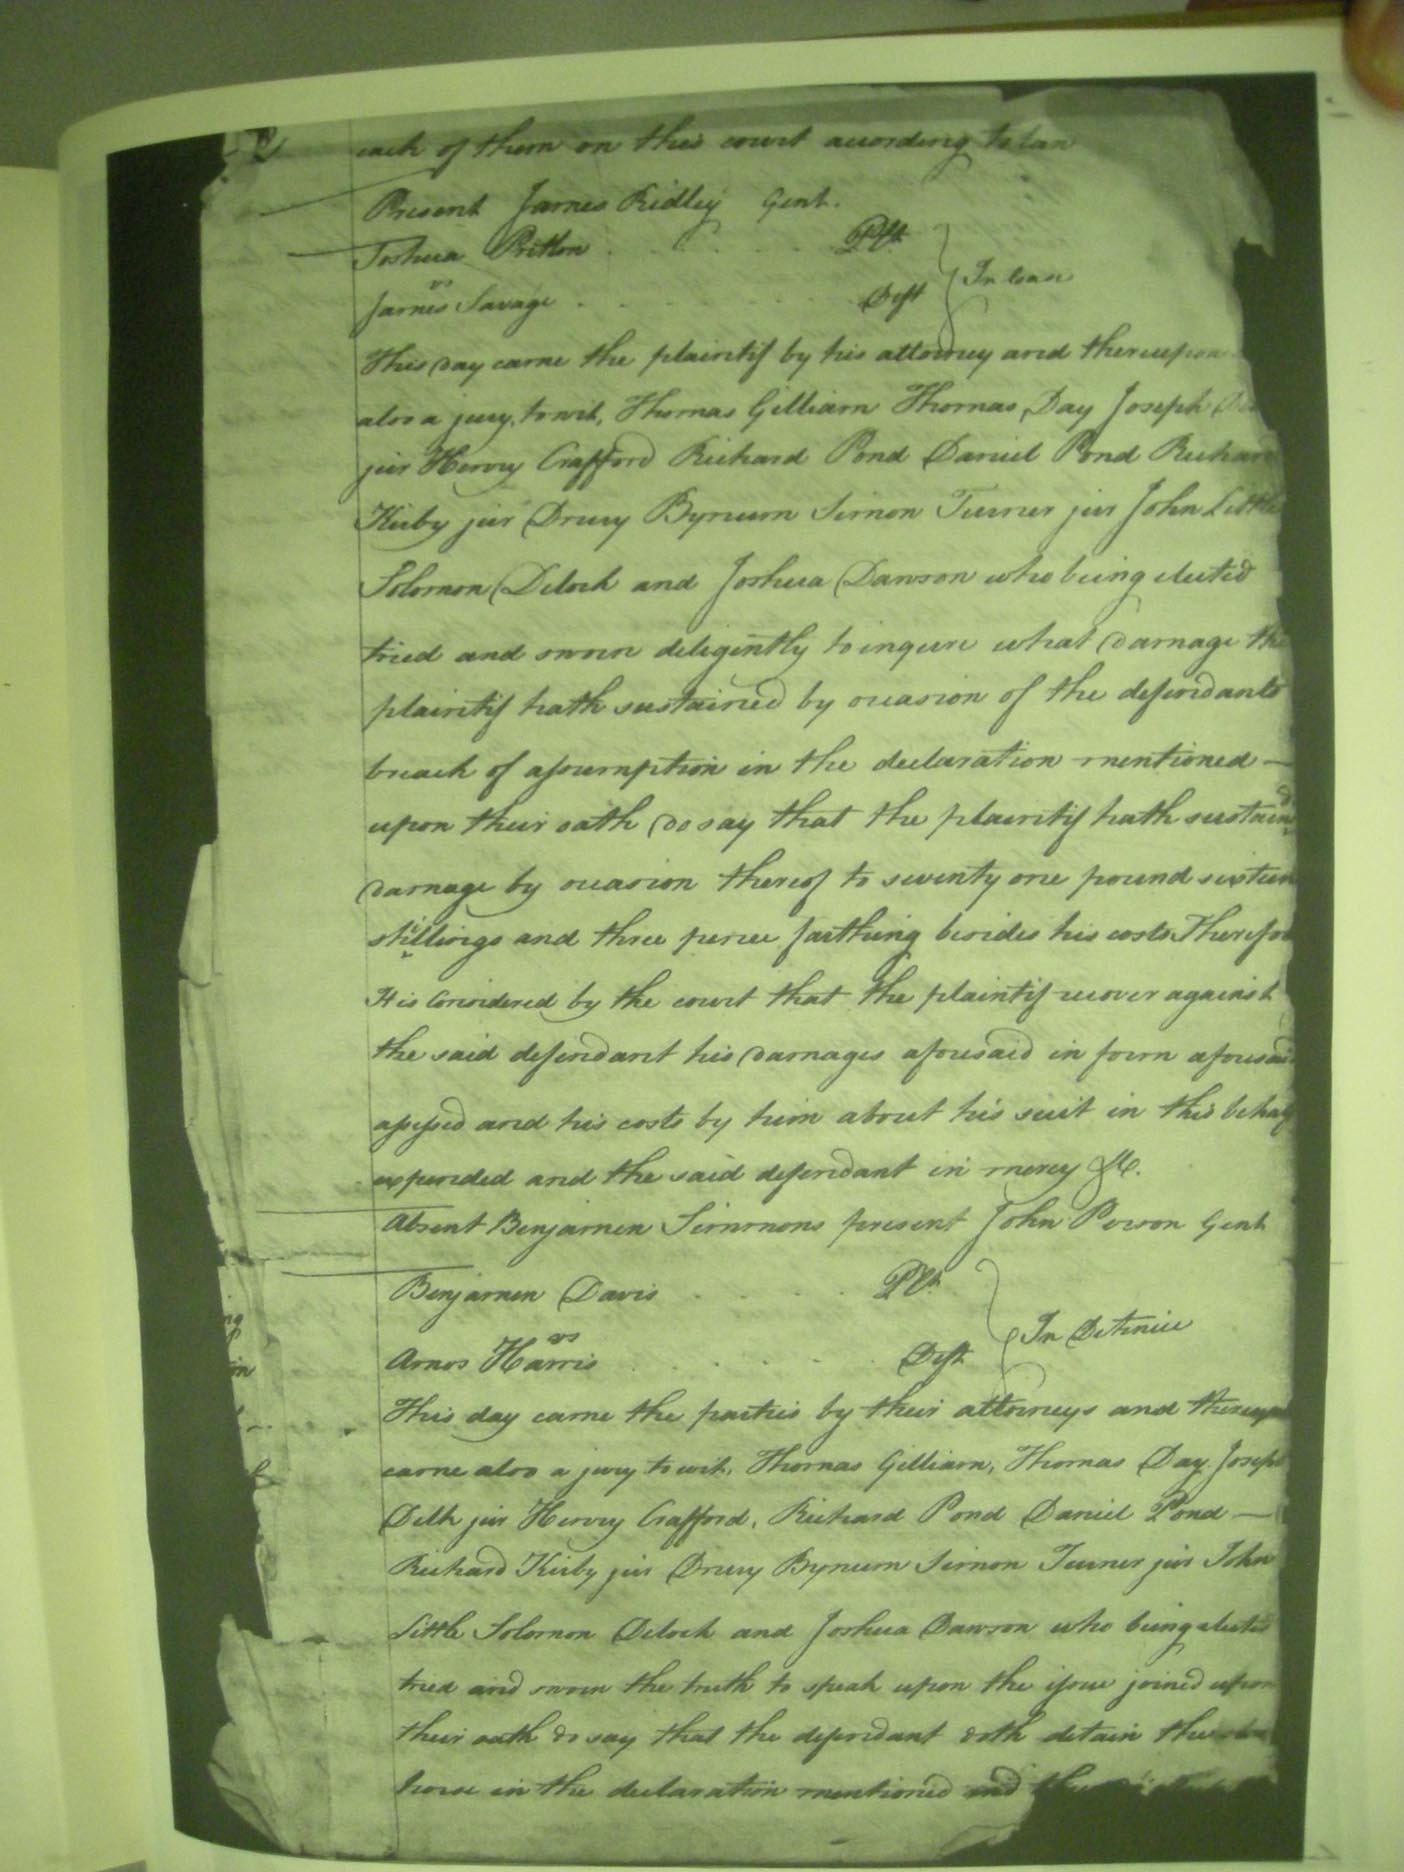 each of them on this court according to law
Present James Ridley Gent.
Joshua Pritlon Plt.
vs
James Savage Deft In Case
This day came the plaintif by his attorney and thereupon
also a jury, towit, Thomas Gilliam Thomas Day Joseph
jur Henry Crafford Richard Pond Daniel Pond Richard
Kirby jur Drury Bynum Simon Turner jur John Little
Solomon Deloch and Joshua Dawson who being elected
tried and sworn deligently to inqure what damage the
plaintif hath sustained by occasion of the defendants
breach of assumption in the declaration mentioned —
upon their oath do say that the plaintif hath sustaind
damage by occasion thereof to seventy one pound sixteen
shillings and three pence farthing besides his costs Therefore
It is Considered by the court that the plaintif recover against
the said defendant his damages aforesaid in form aforesaid
assessed and his costs by him about his suit in this behalf
expended and the said defendant in mercy &c.
Absent Benjamen Simmons present John Person Gent
Benjamen Davis Plt.
vs
Amos Harris Deft In Detinue
This day came the parties by their attorneys and thereupon
came also a jury to wit, Thomas Gilliam, Thomas Day. Joseph
Delk jur Henry Crafford, Richard Pond Daniel Pond —
Richard Kirby jur Drury Bynum Simon Turner jur John
Little Solomon Deloch and Joshua Dawson who being elected
tried and sworn the truth to speak upon the issue joined upon
their oath do say that the defendant doth detain the
horse in the declaration mentioned and